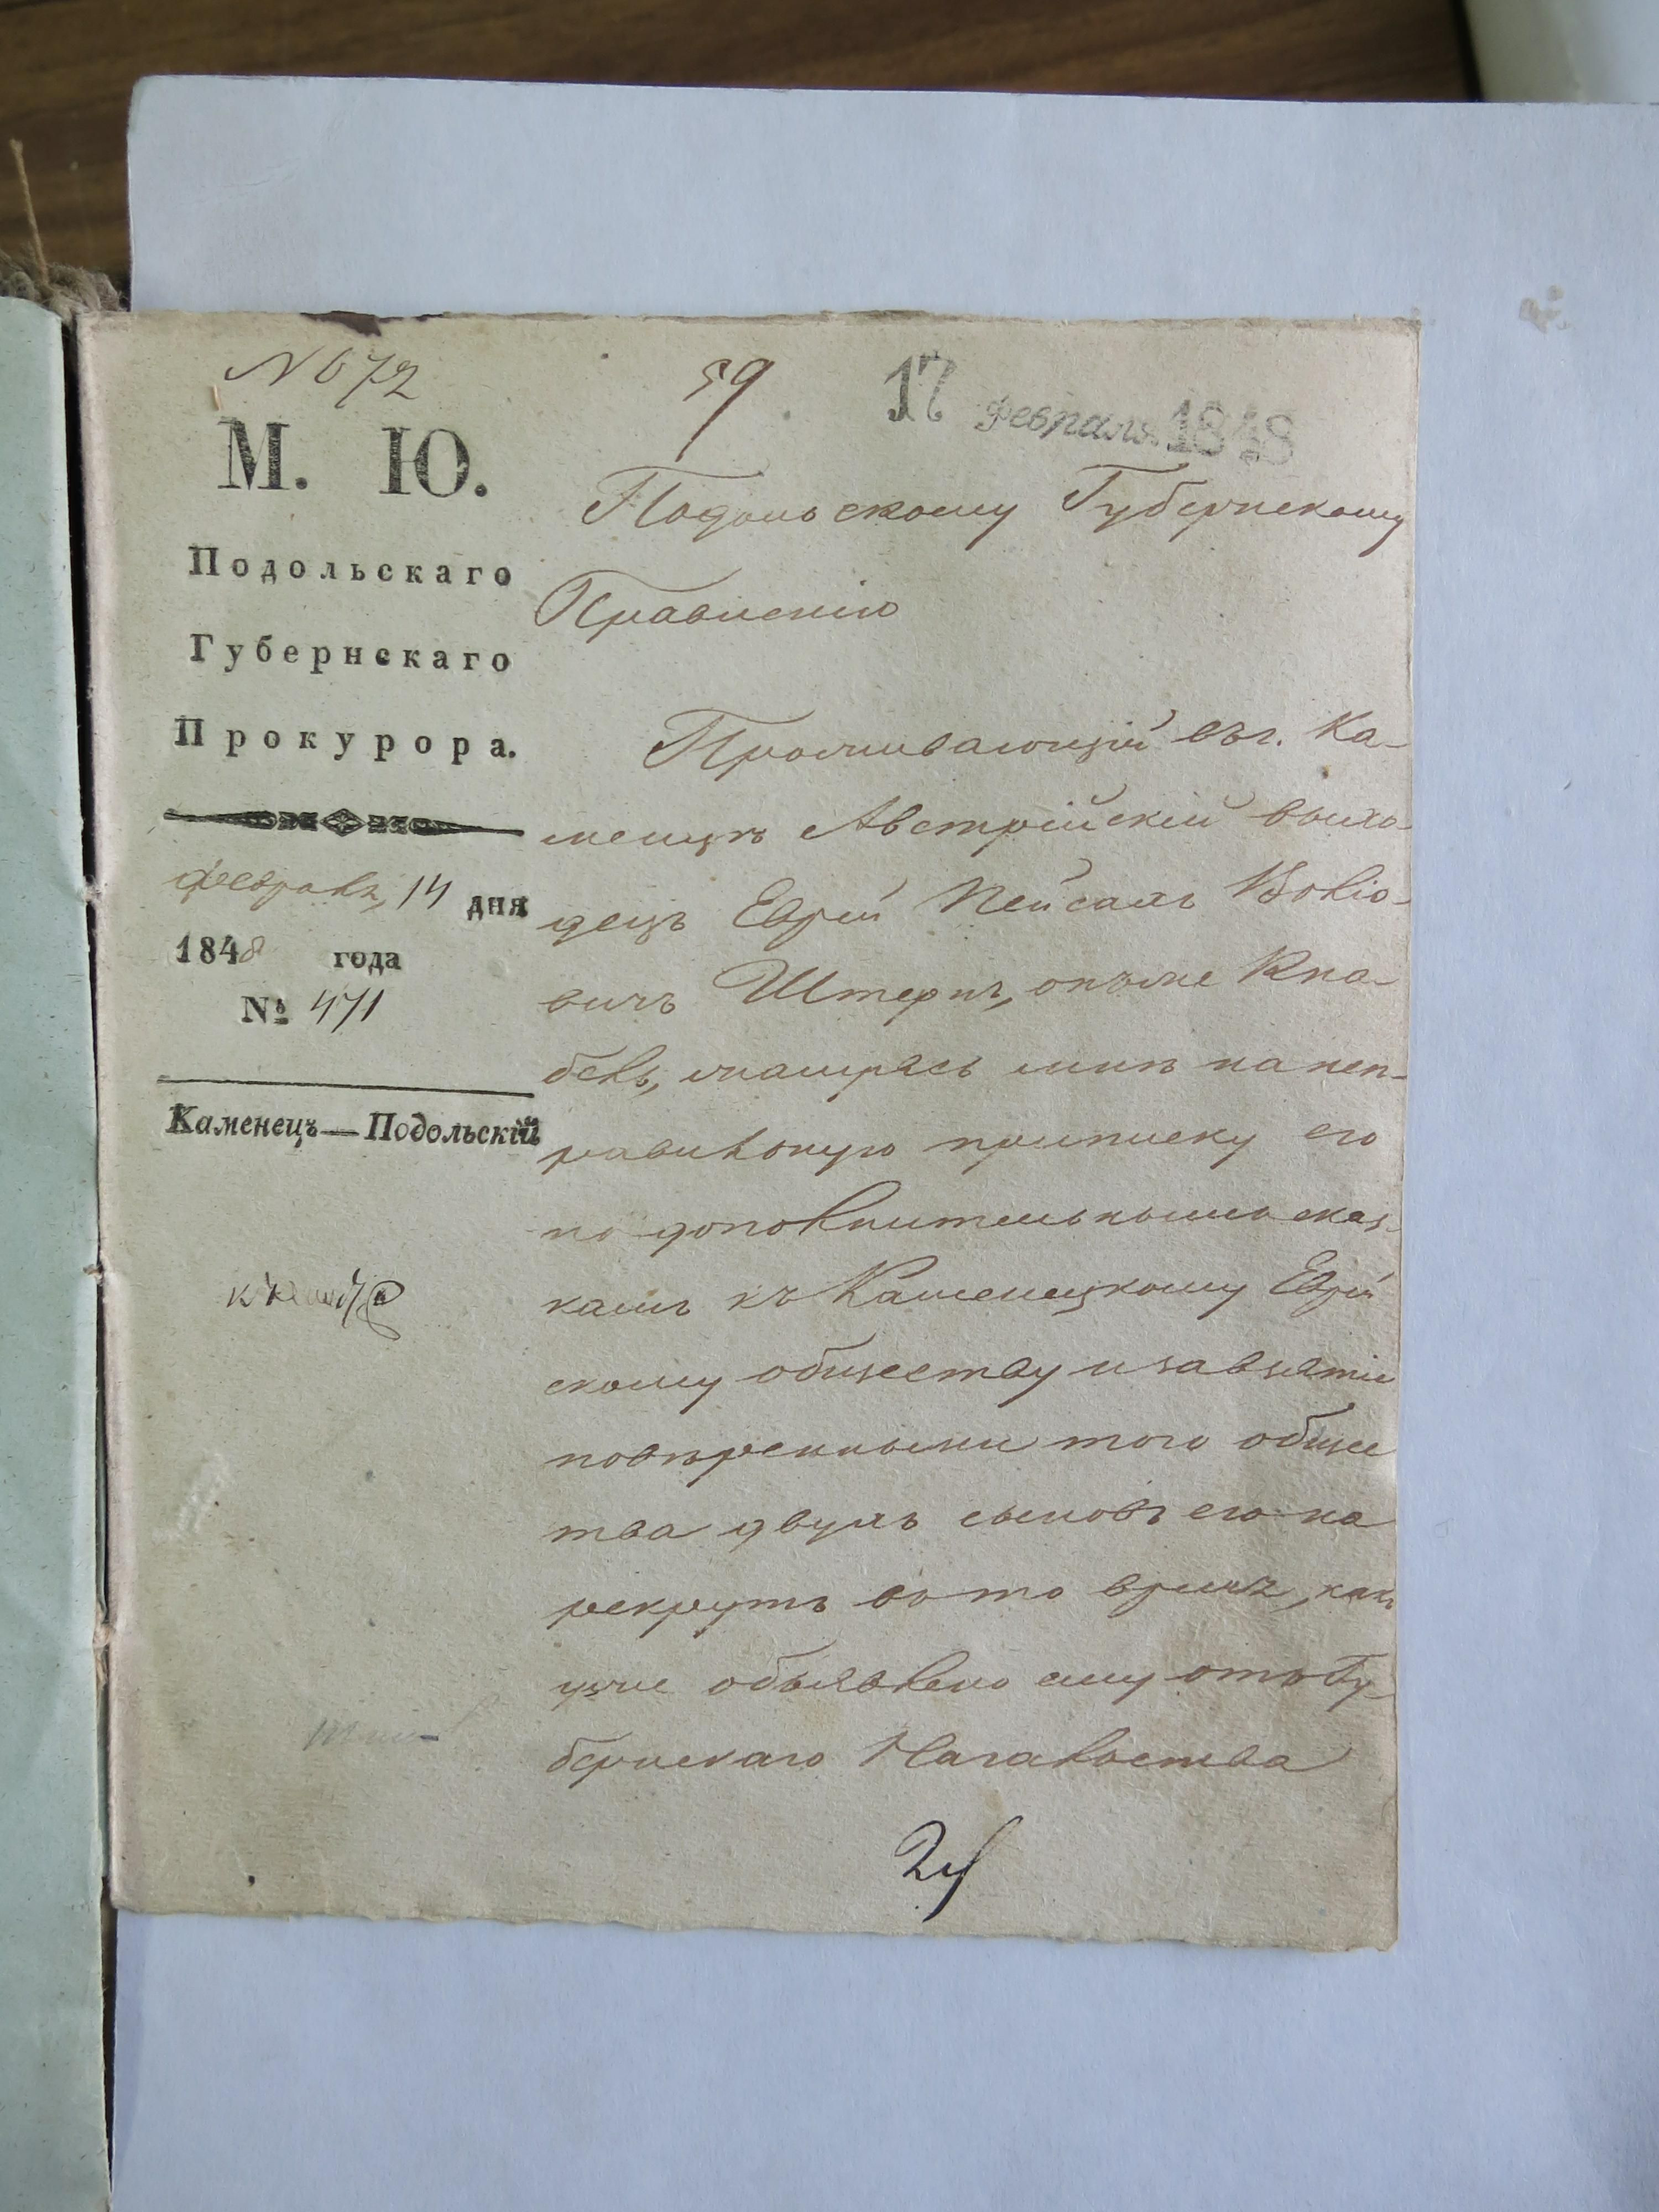 № 672
59
17 февраля 1848
М. Ю.
Подольскаго
Губернскаго
Прокурора.
февраля, 14 дня
1848 года
№ 471
Каменецъ—Подольскій
Подольскому Губернскому
Правленію
Проживающій въ г. Ка-
менцѣ Австрійскій выхо-
децъ Еврей Пейсахъ
вичъ Штернъ, онъ же Кна-
бель, жалуясь мнѣ на неп-
равильную приписку его
по дополнительнымъ сказ-
камъ къ Каменецкому Еврей
скому обществу и за взятіе
повѣренными того общес
тва двухъ сыновъ его на
рекрутъ во то время, какъ
уже объявлено ему отъ Гу-
бернскаго Начальства
24